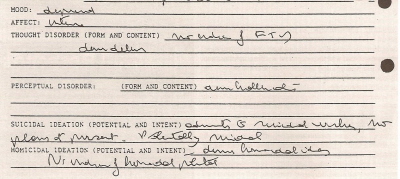 MOOD: depressed
AFFECT:
THOUGHT DISORDER (FORM AND CONTENT) no evidence of FTD
denies delusions
PERCEPTUAL DISORDER: (FORM AND CONTENT) denies hallucinations
SUICIDAL IDEATION (POTENTIAL AND INTENT) admits to suicidal wishes, no
plans at present. Potentially suicidal
HOMICIDAL IDEATION (POTENTIAL AND INTENT) denies homicidal ideas
No evidence of homicidal potential